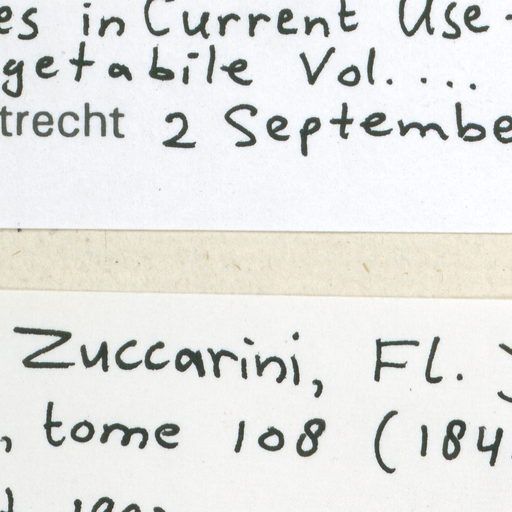 es in Current Use-
getabile Vol. ...
trecht 2 Septembe
Zuccarini, Fl.
, tome 108 (184